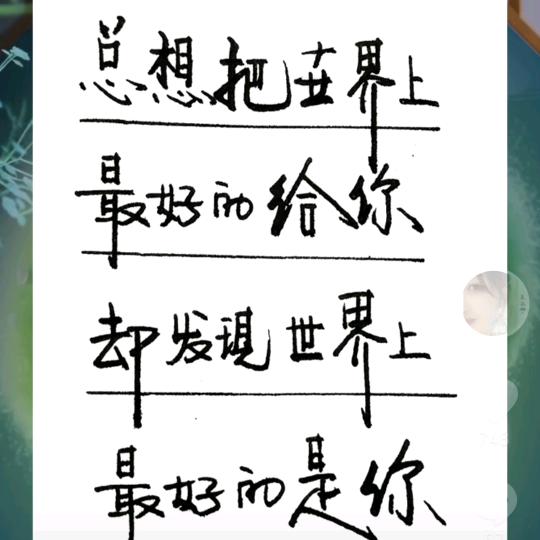 总想把世界上
最好的给你
却发现世界上
最好的是你